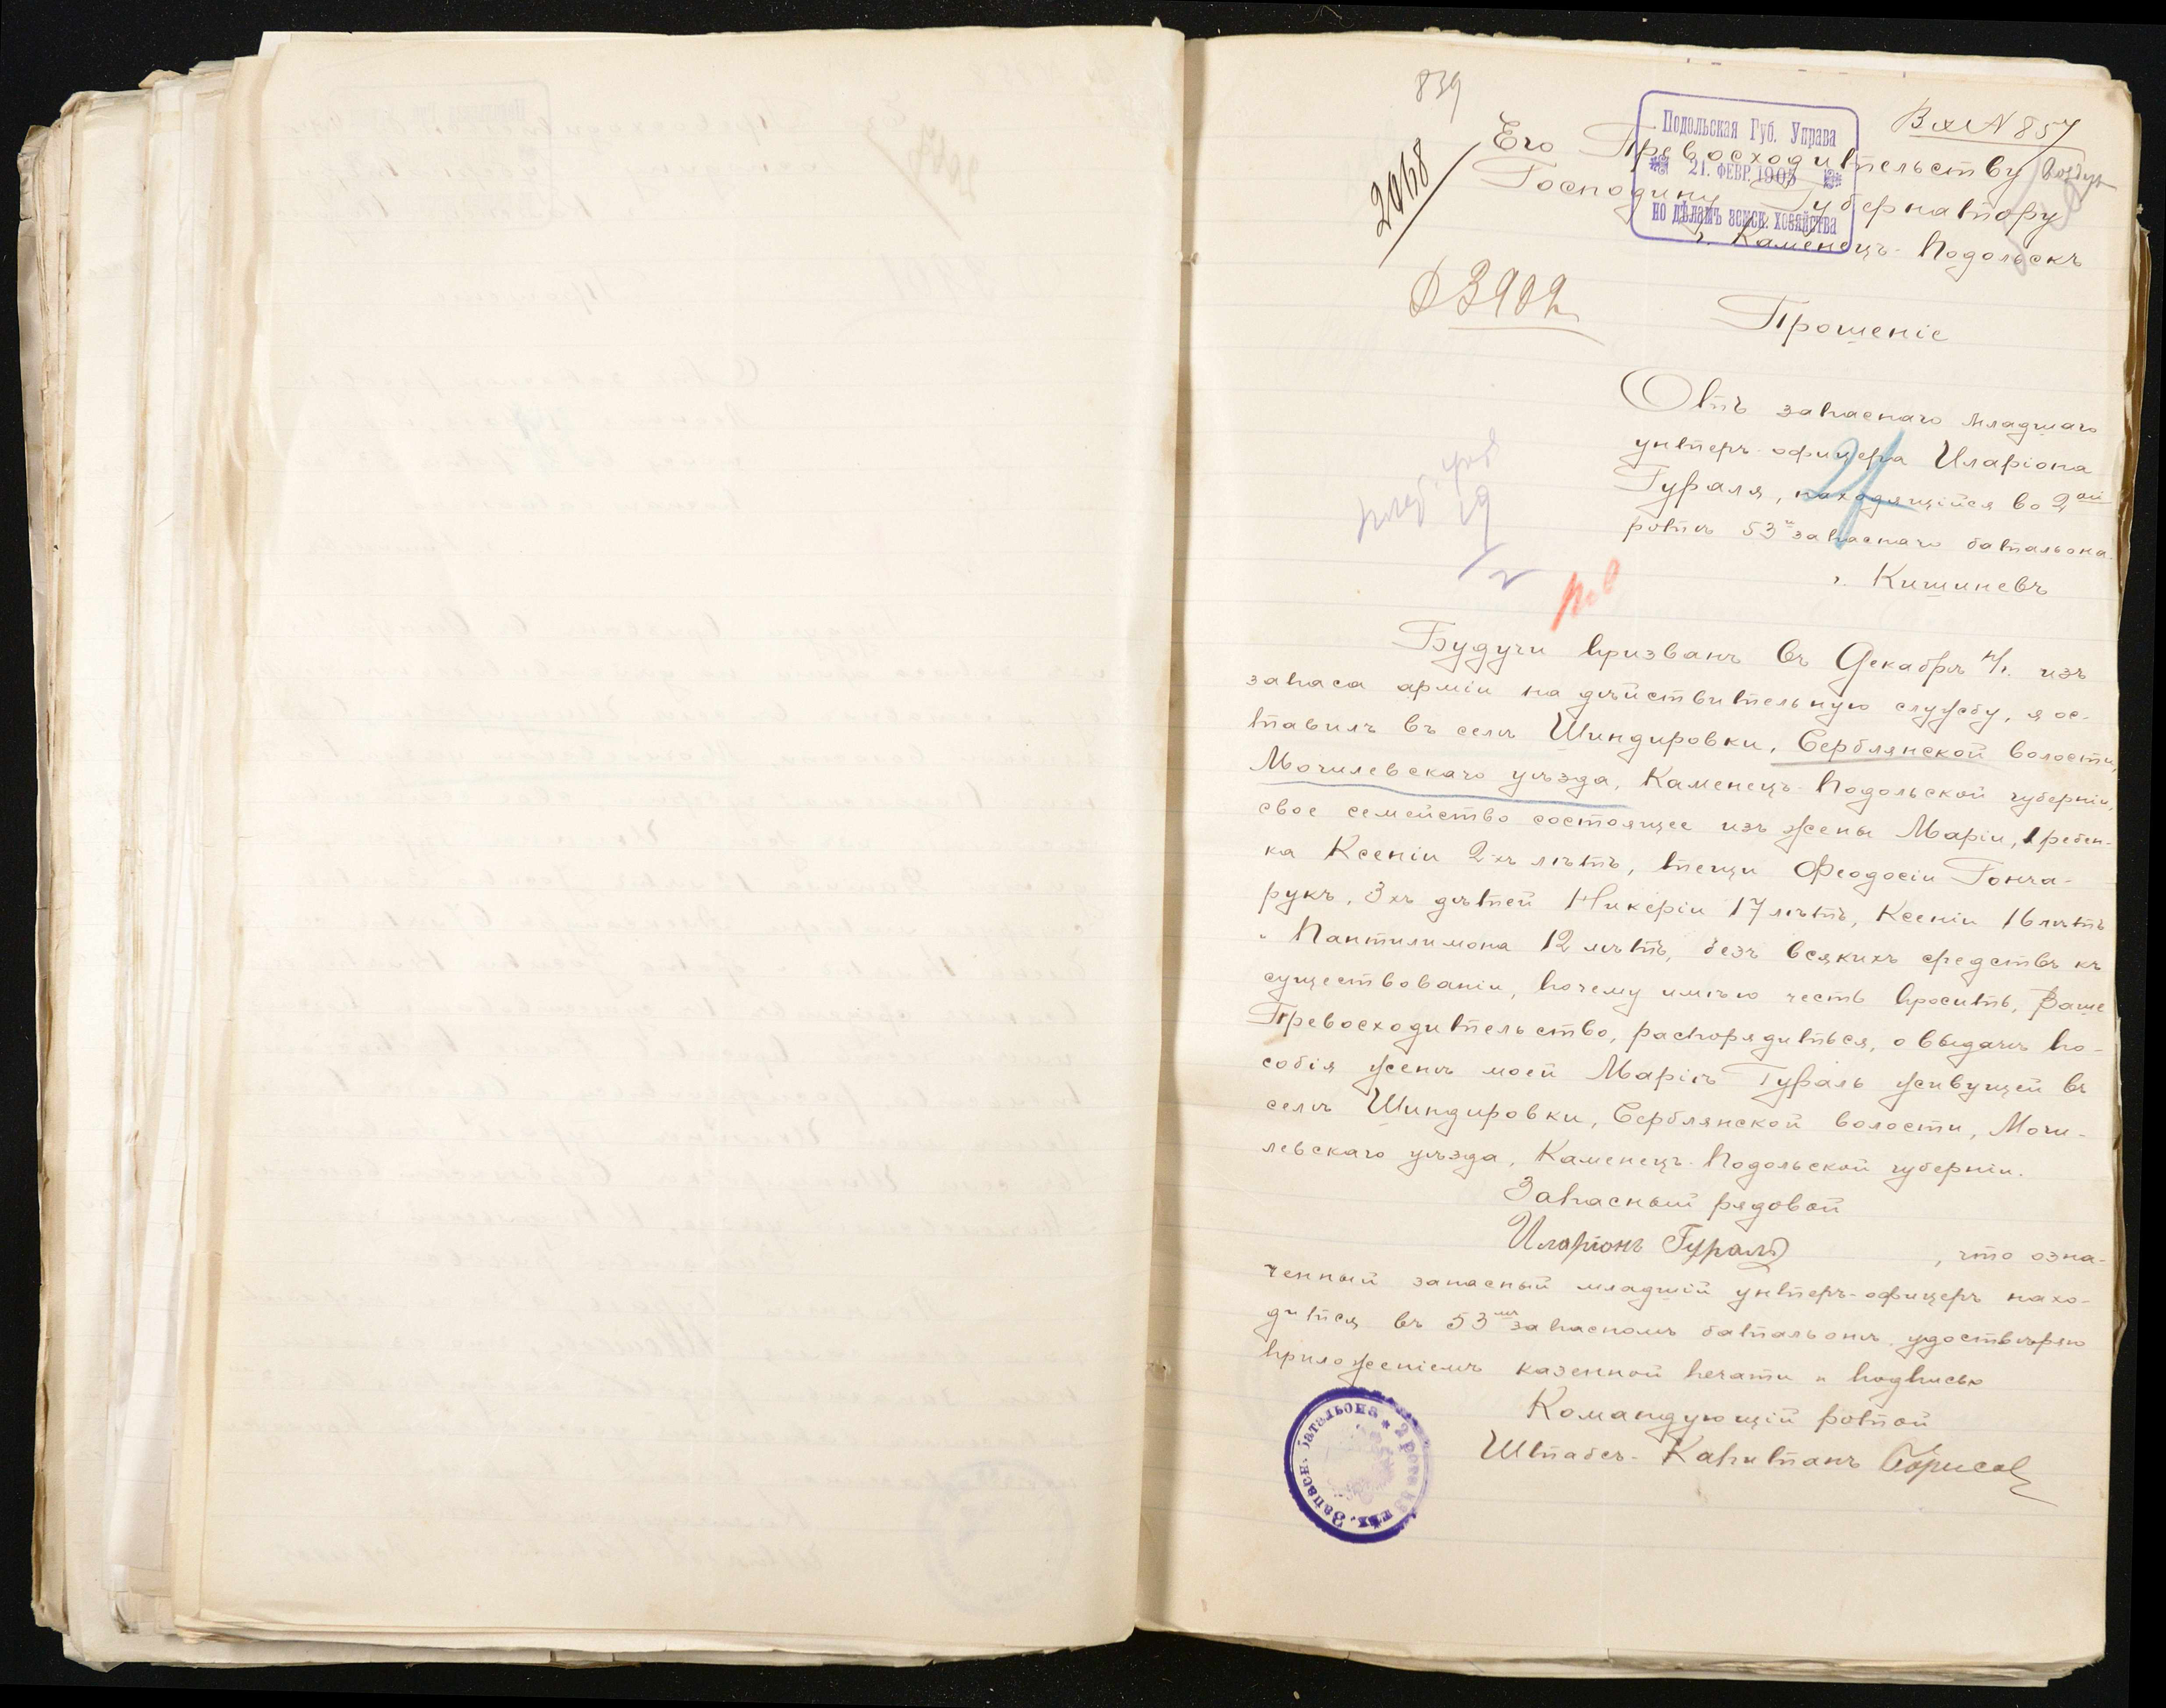 839
Вх N 857
2068
Подольская Губ. Управа
21. ФЕВР. 1905
по дѣламъ земск. хозяйства
Его Превосходительству
Господину Губернатору
г. Каменецъ-Подольскъ
3902
Прошеніе
Отъ запаснаго младшаго
унтеръ-офицера Иларіона
21
Гураля, находящійся во 2ой
ротѣ 53го запаснаго баталіона.
г. Кишиневъ
19
2
Будучи призванъ въ Декабрѣ н/г. изъ
запаса арміи на дѣйствительную службу, я ос-
тавилъ въ селѣ Шиндировки, Серблянской волости,
Могилевскаго уѣзда, Каменецъ-Подольской губерніи,
свое семейство состоящее изъ жены Маріи, 1 ребен-
ка Ксеніи 2-хъ лѣтъ, тещи Феодосіи Гонча-
рукъ, 3хъ дѣтей Никеріи 17 лѣтъ, Ксеніи 16 лѣтъ
и Пантилимона 12 лѣтъ, безъ всякихъ средствъ къ
существованіи, почему имѣю честь просить, Ваше
Превосходительство, распорядиться, о выдачѣ по-
собія женѣ моей Маріѣ Гураль живущей въ
селѣ Шиндировки, Серблянской волости, Моги-
левскаго уѣзда, Каменецъ-Подольской губерніи.
Запасный рядовой
Иларіонъ Гураль, что озна-
ченный запасный младшій унтеръ-офицеръ нахо-
дится въ 53мъ запасномъ баталіонѣ удостовѣряю
приложеніемъ казенной печати и подписью
Командующій ротой
Штабсъ-Капитанъ Борисов
Запасн. баталъона * 2 рота